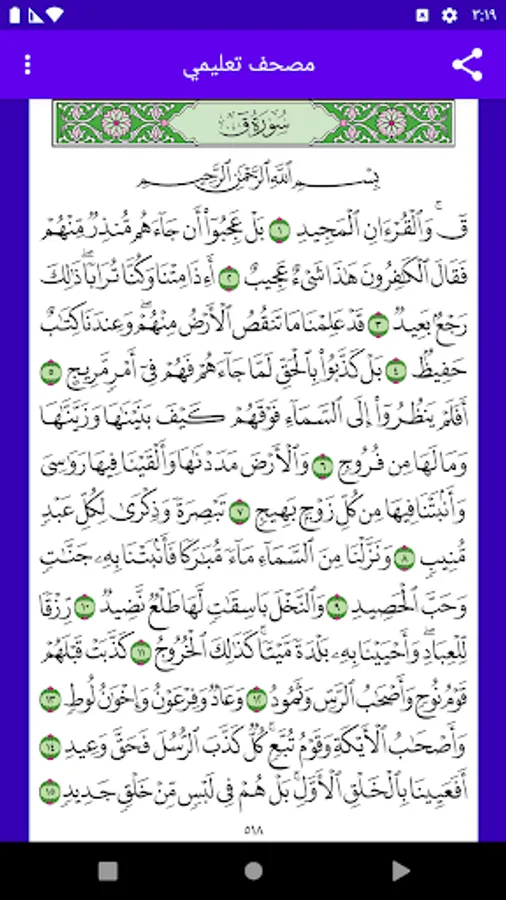 ٣:١٩
مصحف تعليمي
سُورَةُ قٓ
بِسْمِ ٱللَّهِ ٱلرَّحْمَٰنِ ٱلرَّحِيمِ
قٓۚ وَٱلْقُرْءَانِ ٱلْمَجِيدِ ١ بَلْ عَجِبُوٓا۟ أَن جَآءَهُم مُّنذِرٌ مِّنْهُمْ
فَقَالَ ٱلْكَٰفِرُونَ هَٰذَا شَىْءٌ عَجِيبٌ ٢ أَءِذَا مِتْنَا وَكُنَّا تُرَابًاۖ ذَٰلِكَ
رَجْعٌۢ بَعِيدٌ ٣ قَدْ عَلِمْنَا مَا تَنقُصُ ٱلْأَرْضُ مِنْهُمْۖ وَعِندَنَا كِتَٰبٌ
حَفِيظٌۢ ٤ بَلْ كَذَّبُوا۟ بِٱلْحَقِّ لَمَّا جَآءَهُمْ فَهُمْ فِىٓ أَمْرٍ مَّرِيجٍ ٥
أَفَلَمْ يَنظُرُوٓا۟ إِلَى ٱلسَّمَآءِ فَوْقَهُمْ كَيْفَ بَنَيْنَٰهَا وَزَيَّنَّٰهَا
وَمَا لَهَا مِن فُرُوجٍ ٦ وَٱلْأَرْضَ مَدَدْنَٰهَا وَأَلْقَيْنَا فِيهَا رَوَٰسِىَ
وَأَنۢبَتْنَا فِيهَا مِن كُلِّ زَوْجٍۭ بَهِيجٍ ٧ تَبْصِرَةً وَذِكْرَىٰ لِكُلِّ عَبْدٍ
مُّنِيبٍ ٨ وَنَزَّلْنَا مِنَ ٱلسَّمَآءِ مَآءً مُّبَٰرَكًا فَأَنۢبَتْنَا بِهِۦ جَنَّٰتٍ
وَحَبَّ ٱلْحَصِيدِ ٩ وَٱلنَّخْلَ بَاسِقَٰتٍ لَّهَا طَلْعٌ نَّضِيدٌ ١٠ رِّزْقًا
لِّلْعِبَادِۖ وَأَحْيَيْنَا بِهِۦ بَلْدَةً مَّيْتًاۚ كَذَٰلِكَ ٱلْخُرُوجُ ١١ كَذَّبَتْ قَبْلَهُمْ
قَوْمُ نُوحٍ وَأَصْحَٰبُ ٱلرَّسِّ وَثَمُودُ ١٢ وَعَادٌ وَفِرْعَوْنُ وَإِخْوَٰنُ لُوطٍ ١٣
وَأَصْحَٰبُ ٱلْأَيْكَةِ وَقَوْمُ تُبَّعٍۚ كُلٌّ كَذَّبَ ٱلرُّسُلَ فَحَقَّ وَعِيدِ ١٤
أَفَعَيِينَا بِٱلْخَلْقِ ٱلْأَوَّلِۚ بَلْ هُمْ فِى لَبْسٍ مِّنْ خَلْقٍ جَدِيدٍ ١٥
٥١٨